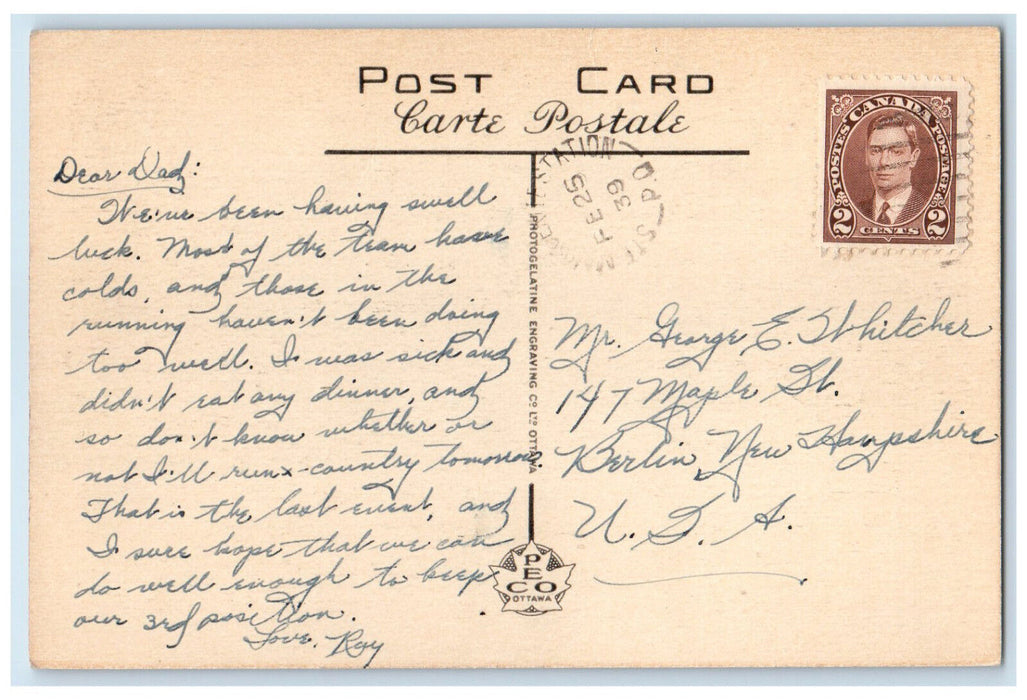 POST CARD
Carte Postale
CANADA
POSTES POSTAGE
2 CENTS 2
STATION
FE 25
39
P.Q.
Dear Dad:
We've been having swell
luck. Most of the team have
colds, and those in the
running haven't been doing
too well. I was sick and
didn't eat any dinner, and
so don't know whether or
not I'll run x-country tomorrow.
That is the last event, and
I sure hope that we can
do well enough to keep
our 3rd position.
Love, Ray
PHOTOGELATINE ENGRAVING CO LTD OTTAWA
PECO
OTTAWA
Mr. George E. Whitcher
147 Maple St.
Berlin, New Hampshire
U. S. A.